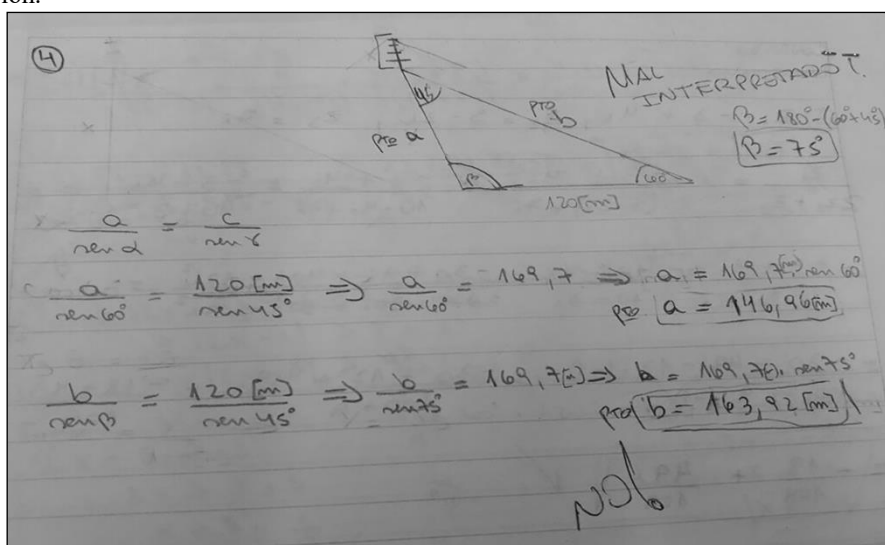 ión.
4
MAL
INTERPRETADO
45
pto b
β = 180° - (60° + 45°)
β = 75°
pto a
β
60°
120 [m]
a / sen α = c / sen γ
a / sen 60° = 120 [m] / sen 45° ⇒ a / sen 60° = 169,7 ⇒ a = 169,7[m] sen 60°
pto a = 146,96 [m]
b / sen β = 120 [m] / sen 45° ⇒ b / sen 75° = 169,7 [m] ⇒ b = 169,7 [m] · sen 75°
pto b = 163,92 [m]
NO!